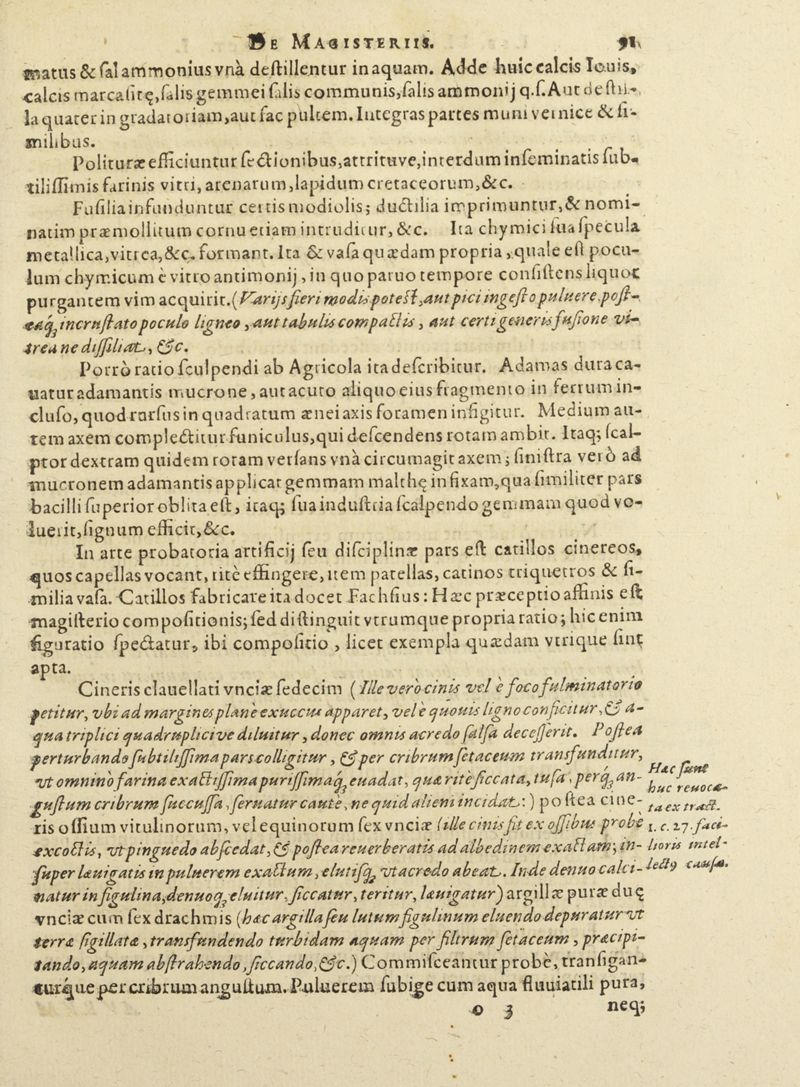 DE MAGISTERIIS. 91
matus & ſal ammonius vnà deſtillentur in aquam. Adde huic calcis Iouis,
calcis marcaſitę, ſalis gemmei ſalis communis, ſalis ammonij q. ſ. Aut deſtil-
la quater in gradatoriam, aut fac pultem. Integras partes muni vernice & ſi-
milibus.
Polituræ efficiuntur ſectionibus, attrituve, interdum inſeminatis ſub-
tiliſſimis farinis vitri, arenarum, lapidum cretaceorum, &c.
Fuſilia infunduntur certis modiolis; ductilia imprimuntur, & nomi-
natim præmollitum cornu etiam intruditur, &c. Ita chymici ſua ſpecula
metallica, vitrea, &c. formant. Ita & vaſa quædam propria, quale eſt pocu-
lum chymicum è vitro antimonij, in quo paruo tempore conſiſtens liquor
purgantem vim acquirit. (Varijs fieri modis poteſt, aut pici ingeſto puluere, poſt-
eaq; incruſtato poculo ligneo, aut tabulis compactis, aut certi generis fuſione vi-
trea ne diſſiliat, &c.
Porrò ratio ſculpendi ab Agricola ita deſcribitur. Adamas dura ca-
uatur adamantis mucrone, aut acuto aliquo eius fragmento in ferrum in-
cluſo, quod rurſus in quadratum ænei axis foramen infigitur. Medium au-
tem axem complectitur funiculus, qui deſcendens rotam ambit. Itaq; ſcal-
ptor dextram quidem rotam verſans vnà circumagit axem; ſiniſtra verò ad
mucronem adamantis applicat gemmam malthę infixam, qua ſimiliter pars
bacilli ſuperior oblita eſt, itaq; ſua induſtria ſcalpendo gemmam quod vo-
luerit, ſignum efficit, &c.
In arte probatoria artificij ſeu diſciplinæ pars eſt catillos cinereos,
quos capellas vocant, ritè effingere, item patellas, catinos triquetros & ſi-
milia vaſa. Catillos fabricare ita docet Fachſius: Hæc præceptio affinis eſt
magiſterio compoſitionis; ſed diſtinguit vtrumque propria ratio; hic enim
figuratio ſpectatur, ibi compoſitio, licet exempla quædam vtrique ſint
apta.
Cineris clauellati vnciæ ſedecim (Ille vero cinis vel è foco fulminatorio
petitur, vbi ad margines planè exuccus apparet, vel è quouis ligno conficitur, & a-
qua triplici quadruplicive diluitur, donec omnis acredo ſalſa deceſſerit. Poſtea
perturbando ſubtiliſſima pars colligitur, & per cribrum ſetaceum transfunditur,
vt omnino farina exactiſſima puriſſimaq; euadat, quæ ritè ſiccata, tuſa, perq; an-
guſtum cribrum ſuccuſſa, ſeruatur cautè, ne quid alieni incidat:) poſtea cine-
ris oſſium vitulinorum, vel equinorum ſex vnciæ (ille cinis fit ex oſſibus probè
excoctis, vt pinguedo abſcedat, & poſtea reuerberatis ad albedinem exactam; in-
ſuper læuigatis in puluerem exactum, elutiſq; vt acredo abeat. Inde denuo calci-
natur in figulina, denuoq; eluitur, ſiccatur, teritur, læuigatur) argillæ puræ duę
vnciæ cum ſex drachmis (hæc argilla ſeu lutum figulinum eluendo depuratur vt
terra ſigillata, transfundendo turbidam aquam per filtrum ſetaceum, præcipi-
tando, aquam abſtrahendo, ſiccando, &c.) Commiſceantur probè, tranſigan-
turque per cribrum anguſtum. Puluerem ſubige cum aqua fluuiatili pura,
o 3 neq;
Hæc ſunt
huc reuoca-
ta ex tract.
1. c. 27. faci-
lioris intel-
lectꝰ cauſa.